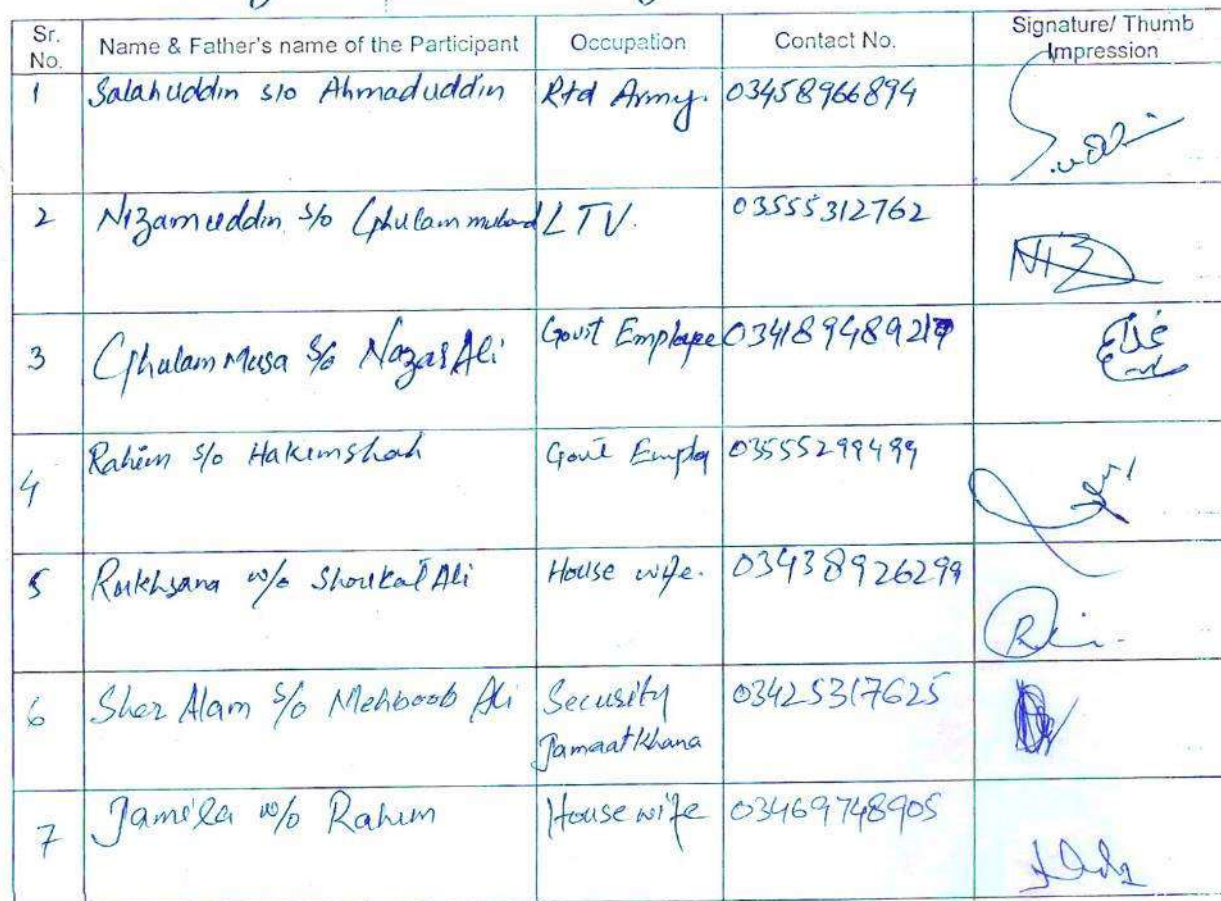 Sr. No. Name & Father's name of the Participant Occupation Contact No. Signature/ Thumb Impression
1 Salahuddin s/o Ahmaduddin Rtd Army. 03458966894
2 Nizamuddin s/o Ghulam LTV. 03555312762 NIZ
3 Ghulam Musa s/o Nazar Ali Govt Employee 0341894892
4 Rahim s/o Hakimshah Govt Employ 03555299499
5 Rukhsana w/o Shoukat Ali House wife. 03438926299
6 Sher Alam s/o Mehboob Ali Security Jamaat Khana 03425317625
7 Jamila w/o Rahim House wife 03469748905